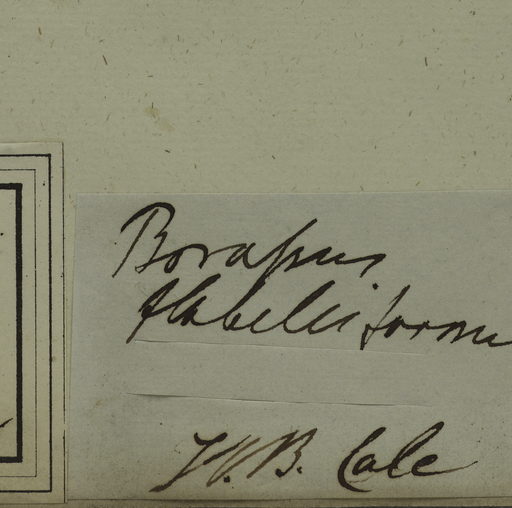 Borassus
flabelliformi
H. B. Calc